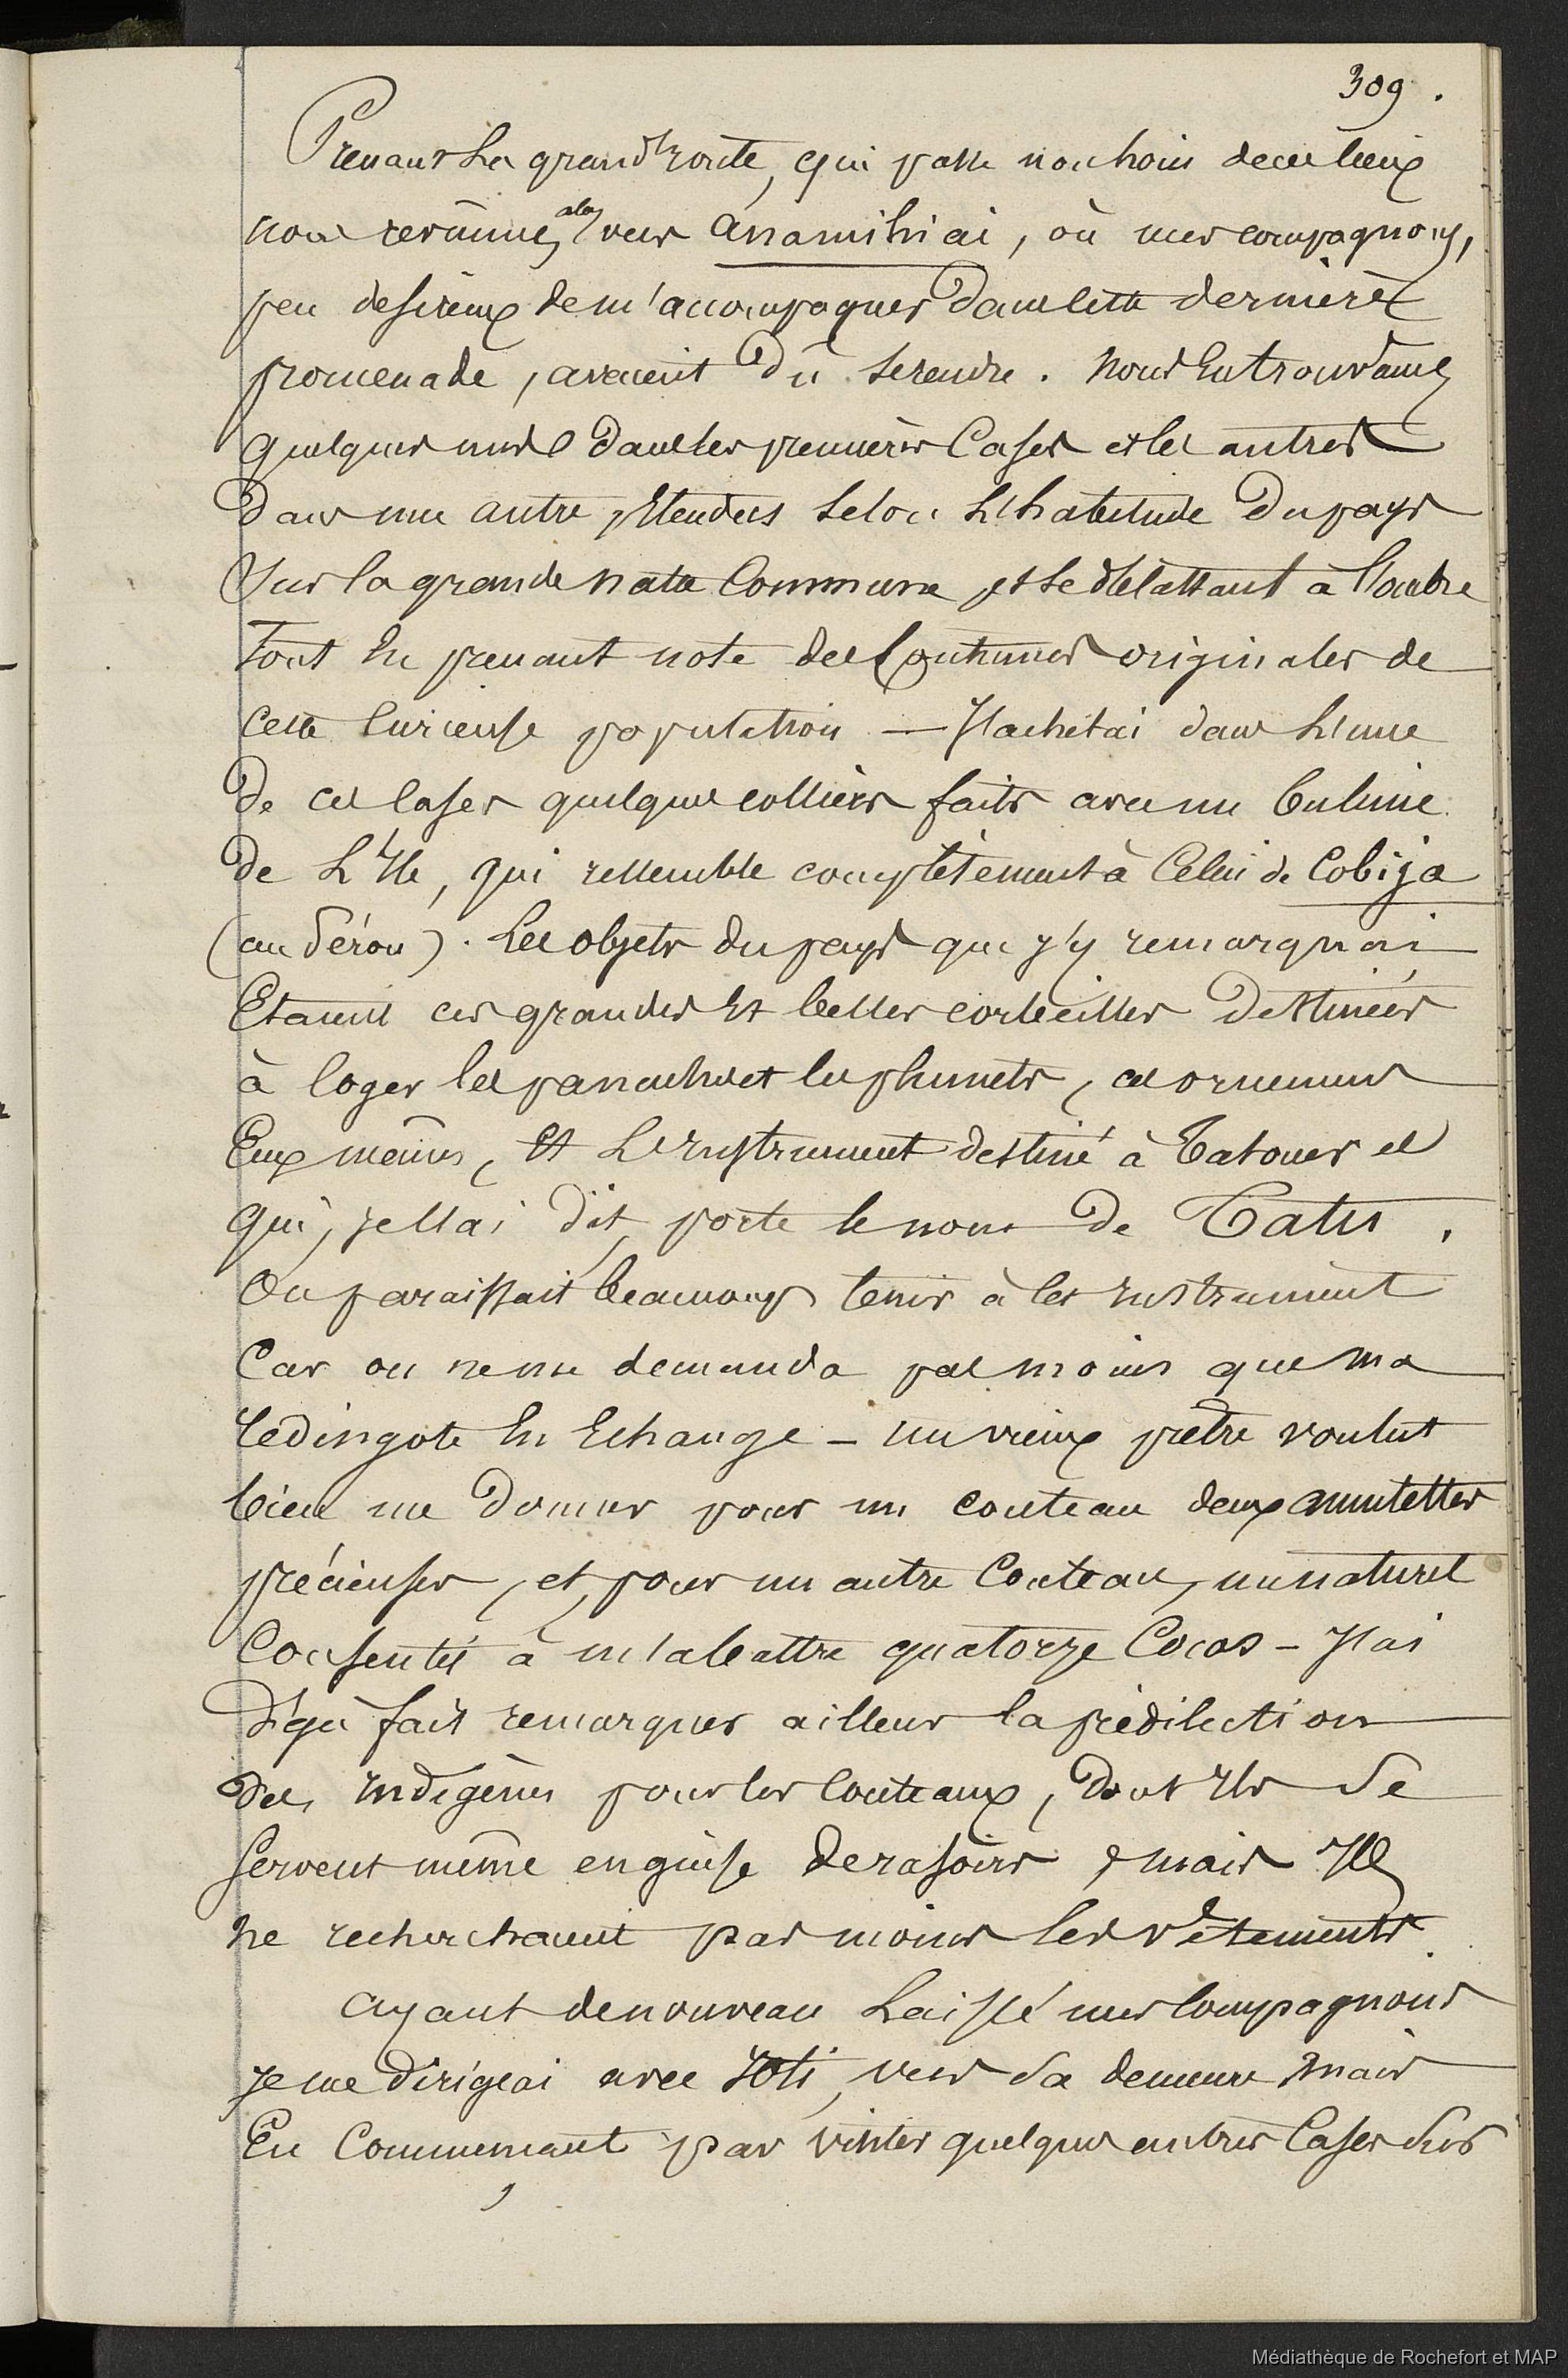 309.
Prenant La grand'route, qui passe non loin de ces lieux
nous revînmes alors vers Anamihiai, où mes compagnons,
peu desireux de m'accompagner Dans cette dernière
promenade, avaient Dû se rendre. Nous En trouvâmes
quelques uns Dans les premières Cases et les autres
Dans une autre, Etendus Selon L'habitude Du pays
Sur la grande natte Commune et se délassant à l'ombre
Tout En prenant note des Coutumes originales de
Cette Curieuse population — J'achetai dans L'une
De ces Cases quelques colliers faits avec un bulime
De L'Ile, qui ressemble complètement à Celui de Cobija
(au Pérou). Les objets du pays que j'y remarquai
Etaient ces grandes Et belles corbeilles Destinées
à loger les panaches et les plumets, ces ornements
Eux mêmes, Et L'Instrument destiné à Tatouer et
qui, je l'ai dit, porte le nom De Tatu.
On paraissait beaucoup tenir à cet Instrument
Car on ne me demanda pas moins que ma
redingote En Echange — un vieux prêtre voulut
bien me Donner pour un couteau deux amulettes
précieuses, et, pour un autre Couteau, un naturel
Consentit à m'abattre quatorze Cocos — J'ai
Déjà fait remarquer ailleurs la prédilection
des Indigènes pour les Couteaux, Dont Ils Se
Servent même en guise De rasoirs, mais Ils
ne recherchaient pas moins les vêtements.
Ayant de nouveau Laissé mes Compagnons
Je me Dirigeai avec Yoti, vers Sa demeure mais
En Commençant par visiter quelques autres Cases Sur